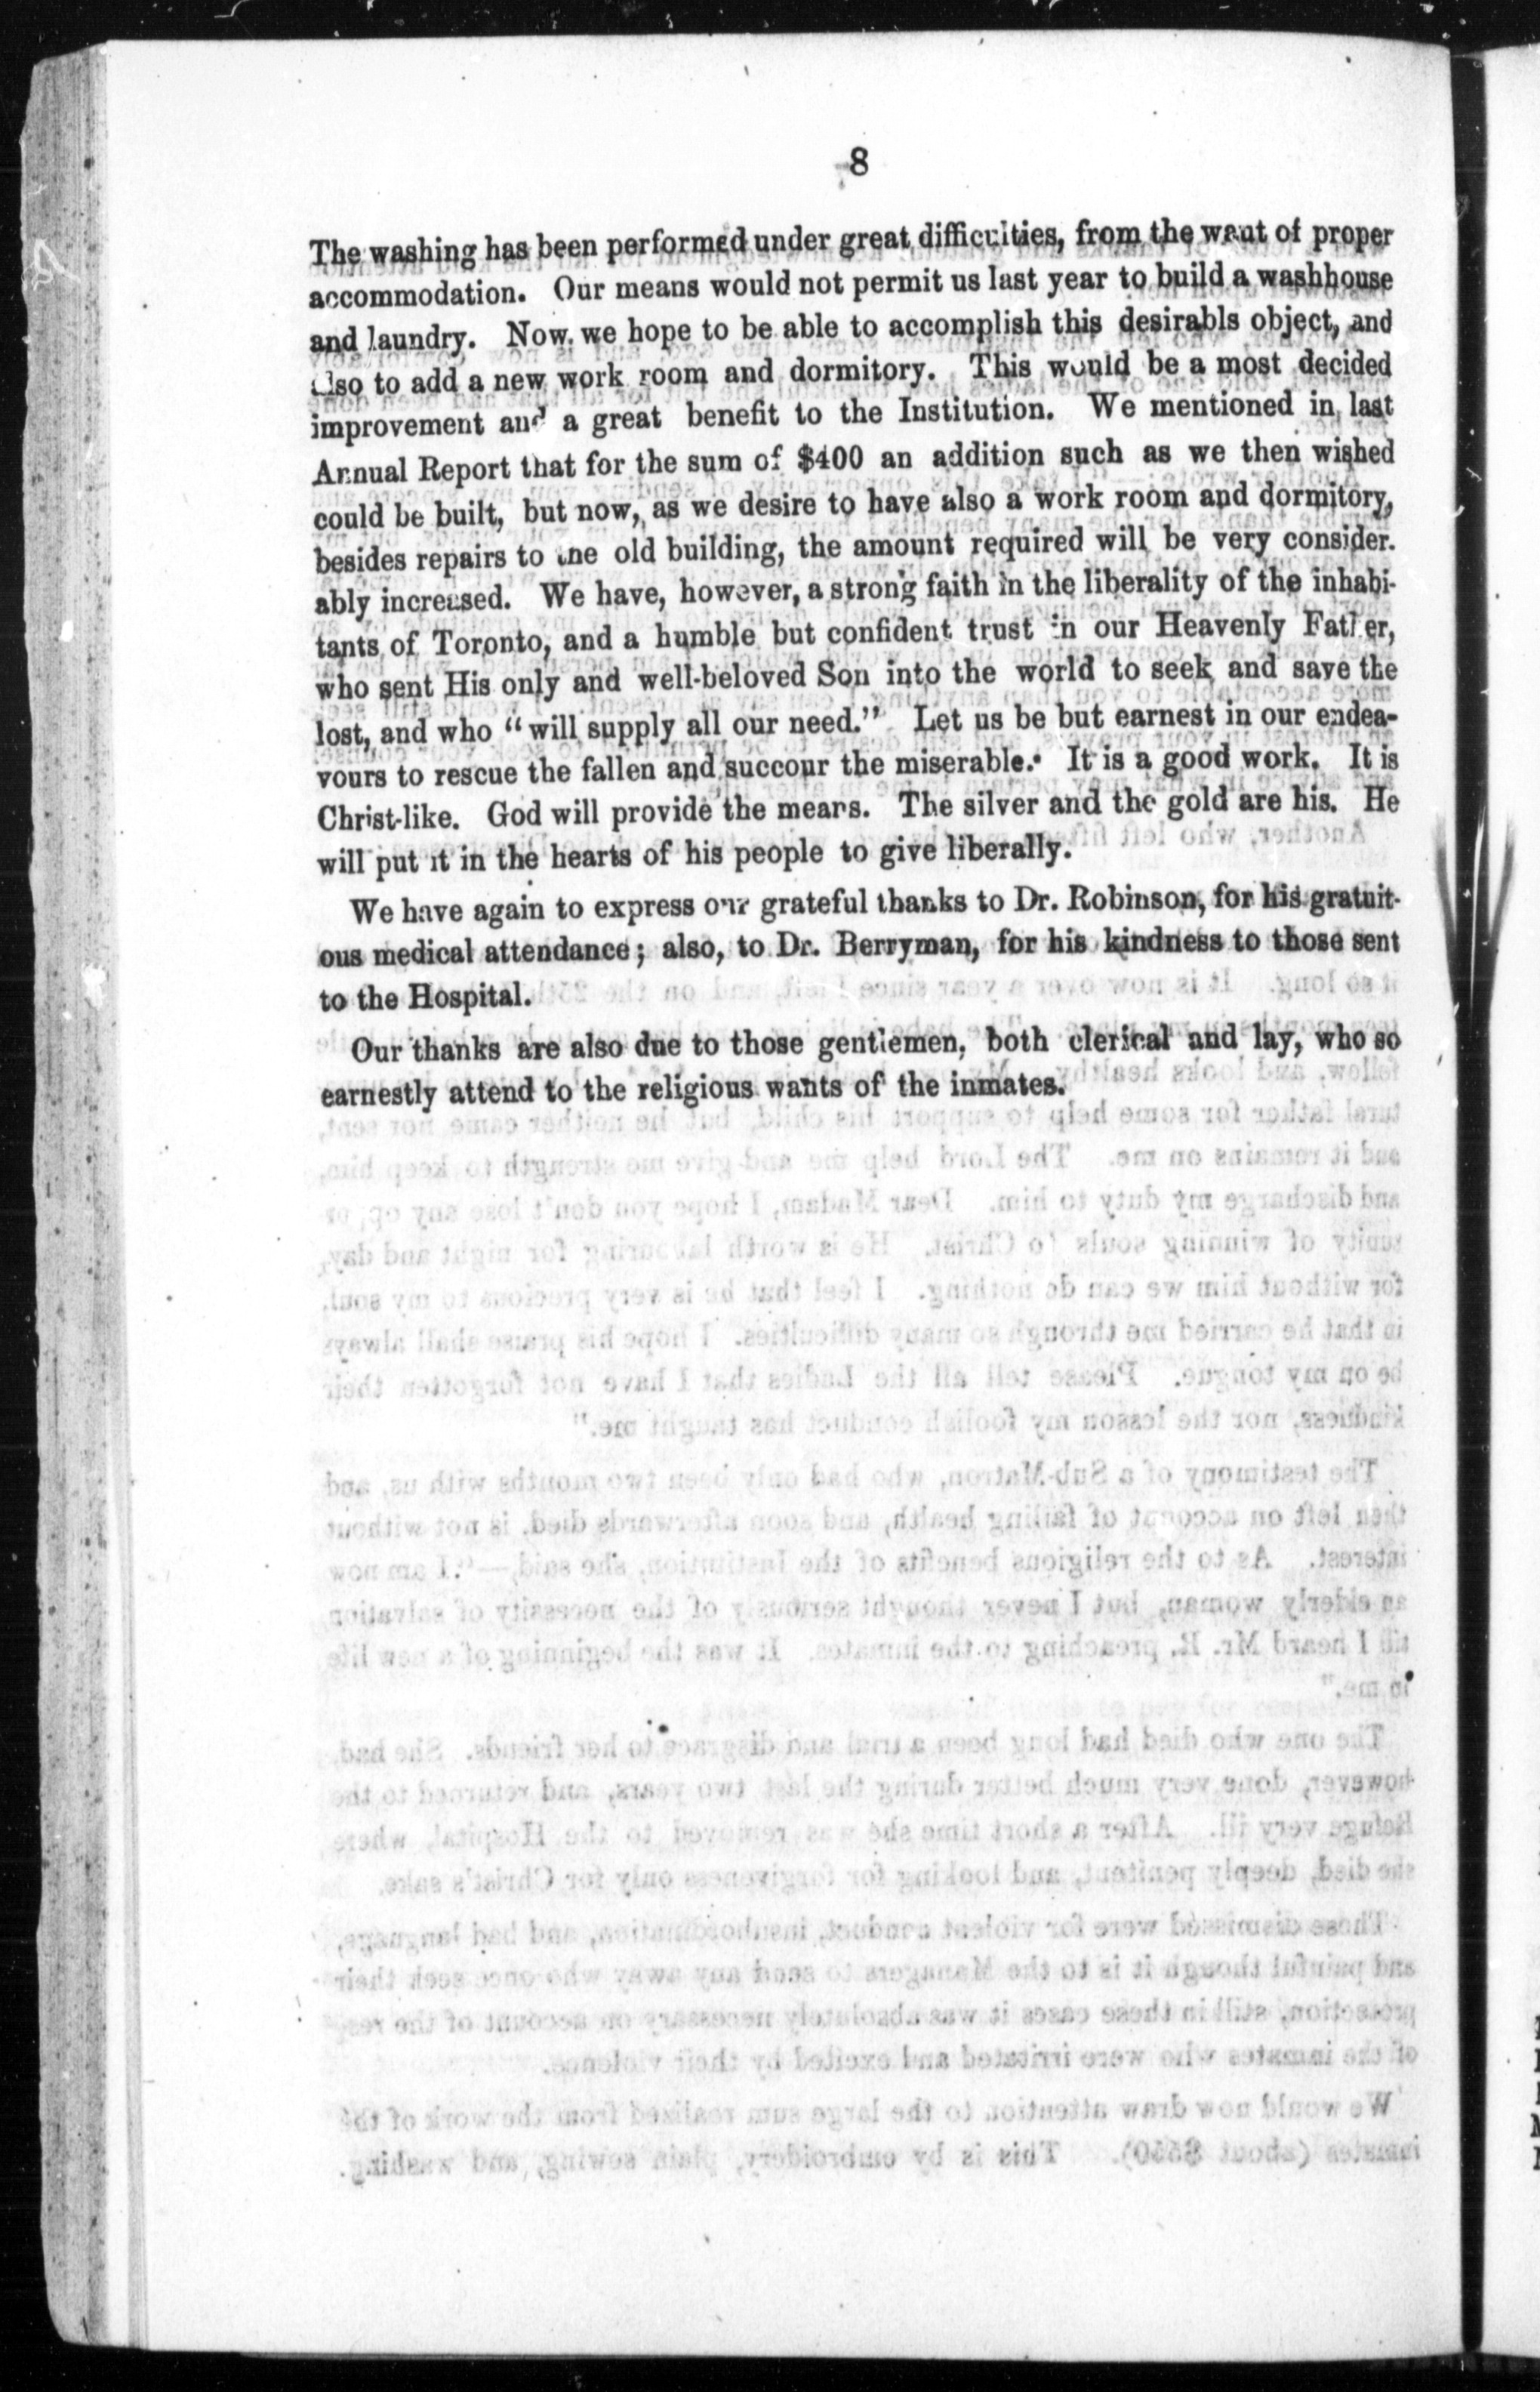 8
The washing has been performed under great difficulties, from the want of proper
accommodation. Our means would not permit us last year to build a washhouse
and laundry. Now we hope to be able to accomplish this desirabls object, and
also to add a new work room and dormitory. This would be a most decided
improvement and a great benefit to the Institution. We mentioned in last
Annual Report that for the sum of $400 an addition such as we then wished
could be built, but now, as we desire to have also a work room and dormitory,
besides repairs to the old building, the amount required will be very consider.
ably increased. We have, however, a strong faith in the liberality of the inhabi-
tants of Toronto, and a humble but confident trust in our Heavenly Father,
who sent His only and well-beloved Son into the world to seek and save the
lost, and who “will supply all our need.” Let us be but earnest in our endea-
vours to rescue the fallen and succour the miserable. It is a good work. It is
Christ-like. God will provide the means. The silver and the gold are his. He
will put it in the hearts of his people to give liberally.
We have again to express our grateful thanks to Dr. Robinson, for his gratuit-
ous medical attendance; also, to Dr. Berryman, for his kindness to those sent
to the Hospital.
Our thanks are also due to those gentlemen, both clerical and lay, who so
earnestly attend to the religious wants of the inmates.